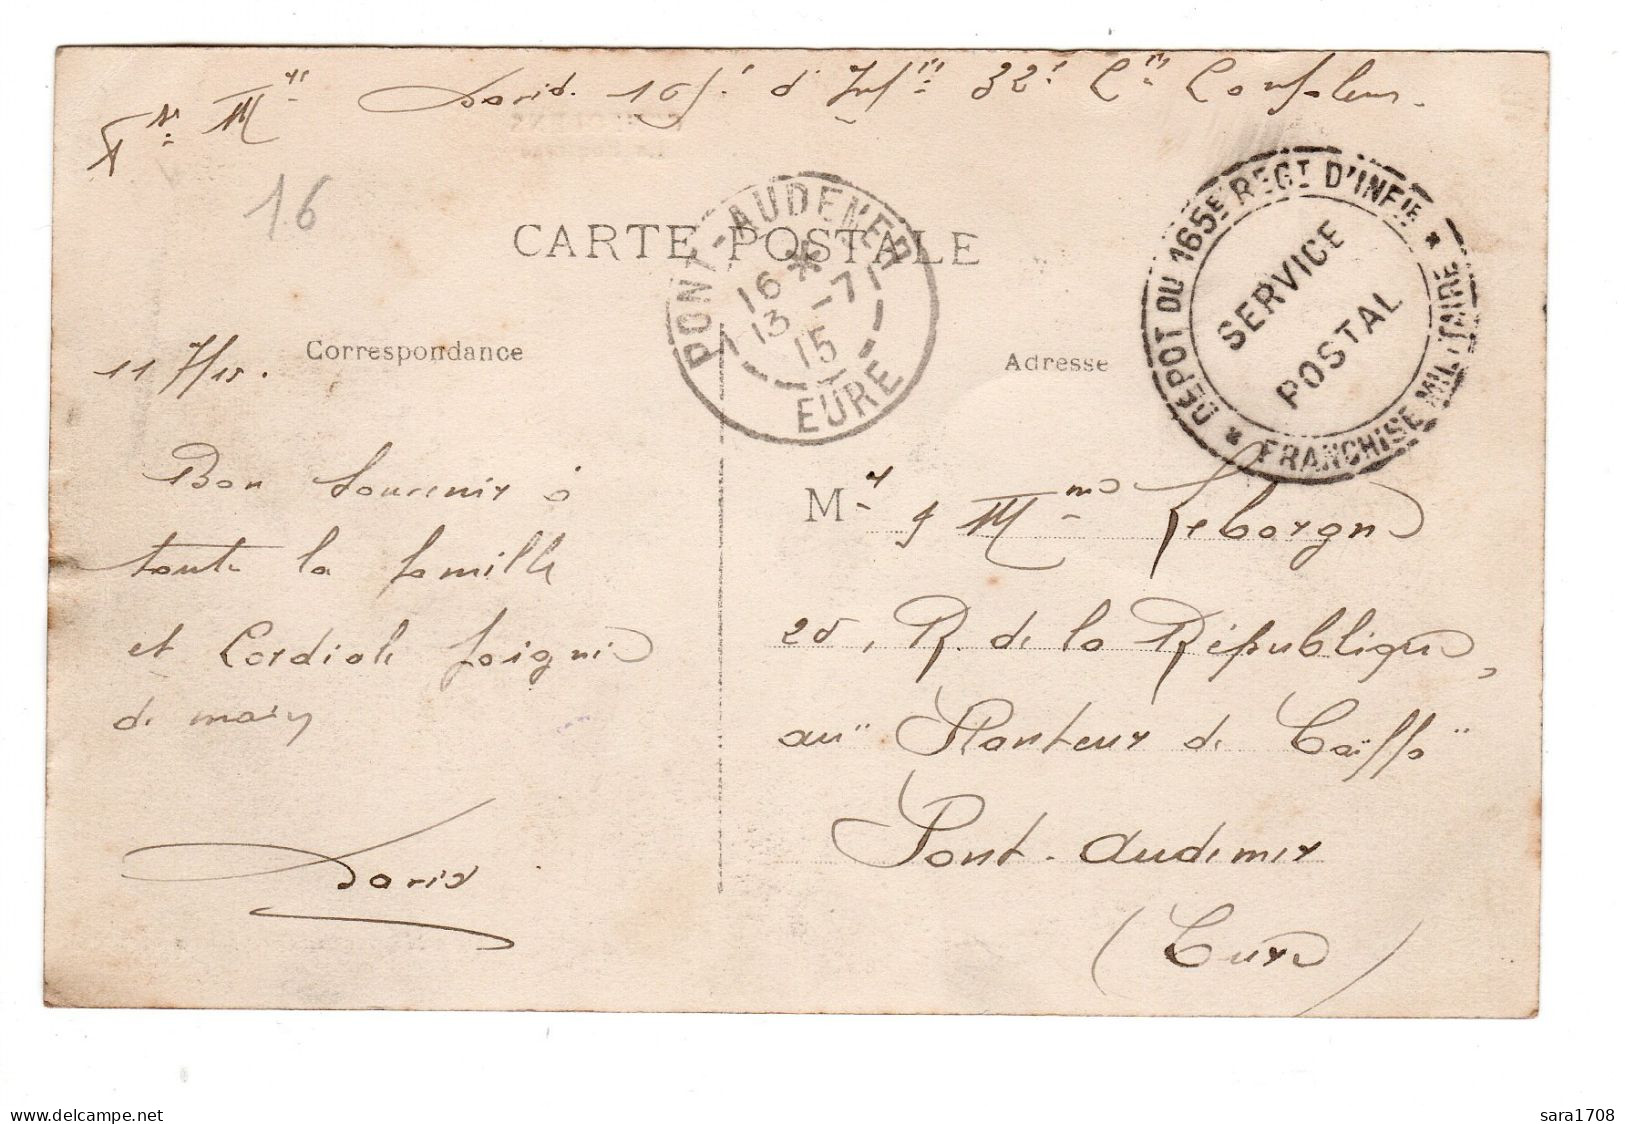 David. 165e d'Infrie 32e Cie Confolens.
16
CARTE POSTALE
PONT-AUDEMER
16 *
13 -7
15
EURE
DÉPOT DU 165E REGT D'INFIE * FRANCHISE MILITAIRE *
SERVICE
POSTAL
Correspondance
11/7/15.
Bon souvenir à
toute la famille
et Cordiale poignée
de main
David
Adresse
Mr & Mme Leborgne
25, R. de la République,
au "Planteur de Caïffa"
Pont-Audemer
(Eure)
delcampe.net
sara1708